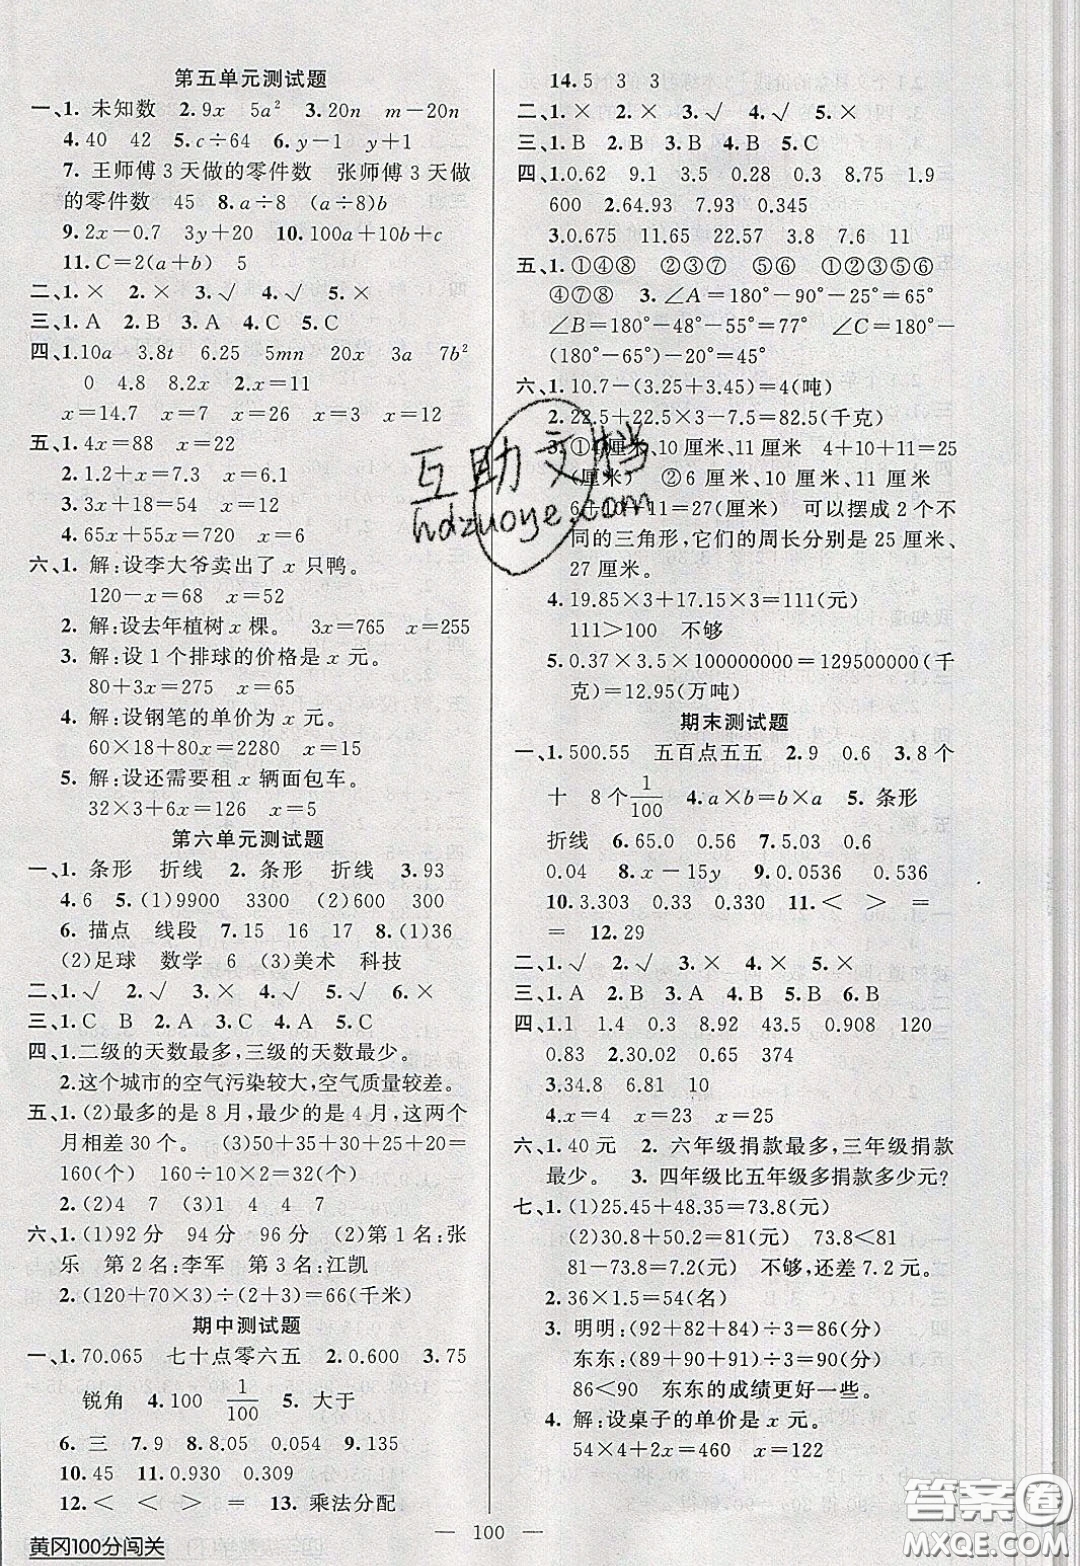 第五单元测试题
一、1. 未知数 2.9x 5a² 3.20n m－20n
4.40 42 5.c÷64 6.y－1 y＋1
7. 王师傅3天做的零件数 张师傅3天做
的零件数 45 8.a÷8 (a÷8)b
9.2x－0.7 3y＋20 10.100a＋10b＋c
11.C＝2(a＋b) 5
二、1.× 2.× 3.√ 4.√ 5.×
三、1.A 2.B 3.A 4.C 5.C
四、1.10a 3.8t 6.25 5mn 20x 3a 7b²
0 4.8 8.2x 2.x＝11
x＝14.7 x＝7 x＝26 x＝3 x＝12
五、1.4x＝88 x＝22
2.1.2＋x＝7.3 x＝6.1
3.3x＋24＝57 x＝11
4.65x＋55x＝720 x＝6
六、1. 解:设李大爷卖出了x只鸭。
120－x＝68 x＝52
2. 解:设去年植树x棵。 3x＝765 x＝255
3. 解:设1个排球的价格是x元。
80＋3x＝275 x＝65
4. 解:设钢笔的单价为x元。
60×18＋80x＝2280 x＝15
5. 解:设还需要租x辆面包车。
32×3＋6x＝126 x＝5
第六单元测试题
一、1. 条形 折线 2. 条形 折线 3.93
4.6 5.(1)9900 3300 (2)600 300
6. 描点 线段 7.15 16 17 8.(1)36
(2)足球 数学 6 (3)美术 科技
二、1.√ 2.× 3.× 4.√ 5.√ 6.×
三、1.C B 2.A 3.C 4.A 5.C
四、1.二级的天数最多,三级的天数最少。
2.这个城市的空气污染较大,空气质量较差。
五、1.(2)最多的是8月,最少的是4月,这两个
月相差30个。 (3)50＋35＋30＋25＋20＝
160(个) 160÷10×2＝32(个)
2.(2)4 7 (3)3 5 6 7
六、1.(1)92分 94分 96分 (2)第1名:张
乐 第2名:李军 第3名:江凯
2.(120＋70×3)÷(2＋3)＝66(千米)
期中测试题
一、1.70.065 七十点零六五 2.0.600 3.75
锐角 4.100 1/100 5. 大于
6. 三 7.9 8.8.05 0.054 9.135
10.45 11.0.930 0.309
12.＜ ＜ ＞ ＝ 13. 乘法分配
14.5 3 3
二、1.× 2.× 3.√ 4.√ 5.×
三、1.B 2.A 3.B 4.B 5.C
四、1.0.62 9.1 3.5 0.28 0.3 8.75 1.9
600 2.64.93 7.93 0.345
3.0.675 11.65 22.57 3.8 7.6 11
五、1.①④⑧ ②③⑦ ⑤⑥ 2.②③⑤⑥
①④⑦⑧ 3.∠A＝180°－90°－25°＝65°
∠B＝180°－48°－55°＝77° ∠C＝180°－
(180°－65°)－20°＝45°
六、1.10.7－(3.25＋3.45)＝4(吨)
2.22.5＋22.5×3－7.5＝82.5(千克)
3.①4厘米、10厘米、11厘米 4＋10＋11＝25
(厘米) ②6厘米、10厘米、11厘米
6＋10＋11＝27(厘米) 可以摆成2个不
同的三角形,它们的周长分别是25厘米、
27厘米。
4.19.85×3＋17.15×3＝111(元)
111＞100 不够
5.0.37×3.5×100000000＝129500000(千
克)＝12.95(万吨)
期末测试题
一、1.500.55 五百点五五 2.9 0.6 3.8个
十 8个1/100 4.a×b＝b×a 5. 条形
折线 6.65.0 0.56 7.5.03
0.04 8.x－15y 9.0.0536 0.536
10.3.303 0.33 0.330 11.＜ ＞ ＝
＝ 12.29
二、1.√ 2.√ 3.× 4.× 5.×
三、1.A 2.B 3.B 4.A 5.B 6.B
四、1.1 1.4 0.3 8.92 43.5 0.908 120
0.83 2.30.02 0.65 374
3.34.8 1.26 87
4.x＝4 x＝23 x＝25
六、1.40元 2. 六年级捐款最多,三年级捐款
最少。 3. 四年级比五年级多捐款多少元?
七、1.(1)25.45＋48.35＝73.8(元)
(2)30.2＋50.8＝81(元) 73.8＜81
81－73.8＝7.2(元) 不够,还差7.2元。
2.36×1.5＝54(名)
3. 明明:(92＋82＋84)÷3＝86(分)
东东:(89＋90＋91)÷3＝90(分)
86＜90 东东的成绩更好一些。
4. 解:设桌子的单价是x元。
54×4＋2x＝460 x＝122
互助文档
hdzuoye.com
— 100 —
黄冈100分闯关
答案圈
MXQE.COM